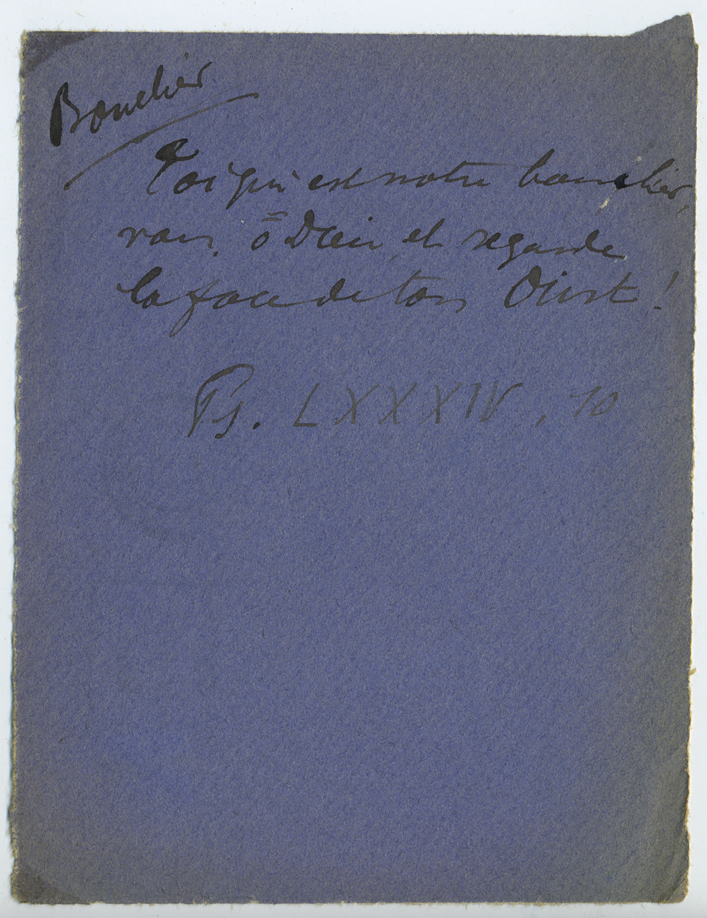 Bouclier
Toi qui es notre bouclier,
vois, ô Dieu, et regarde
la face de ton Oint !
Ps. LXXXIV, 10